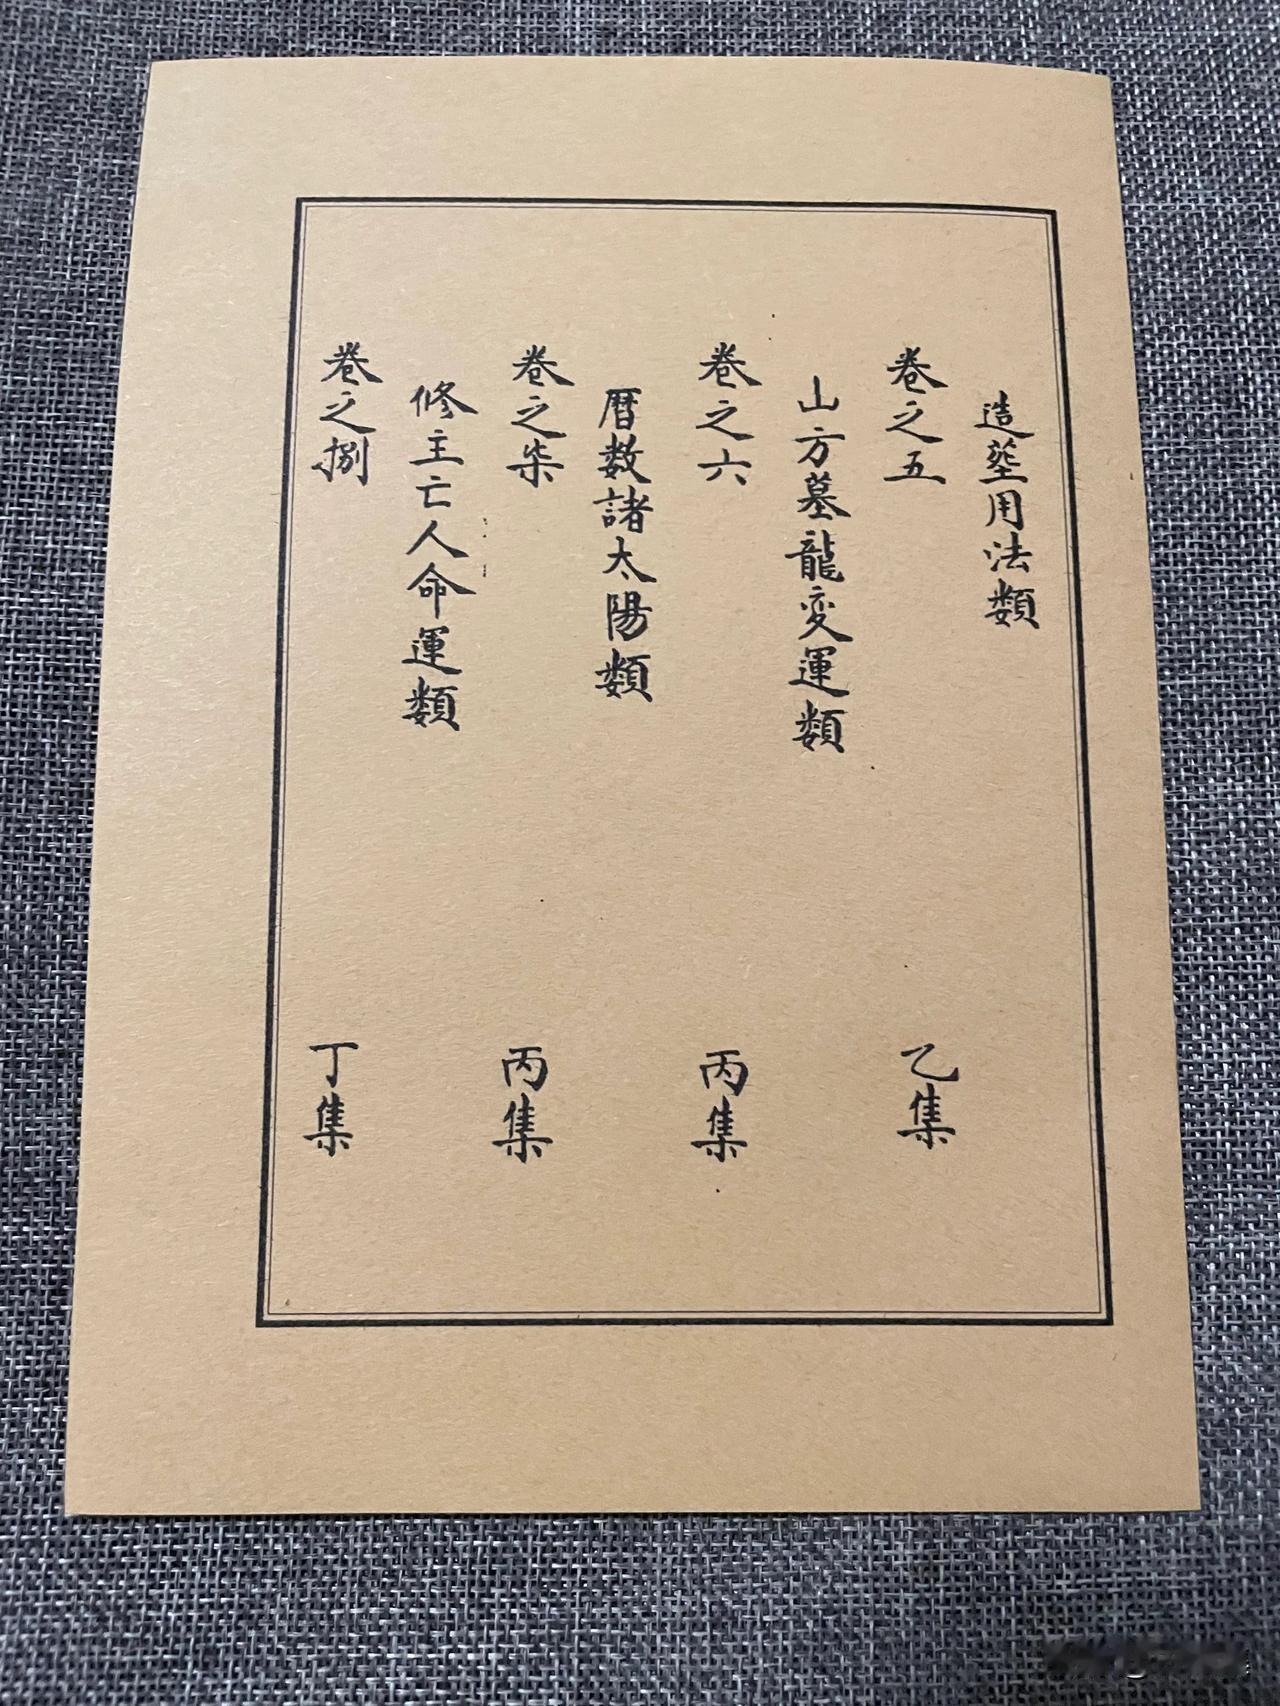 造塟用法類
卷之五 乙集
山方墓龍变運類
卷之六 丙集
暦数諸太陽類
卷之柒 丙集
修主亡人命運類
卷之捌 丁集